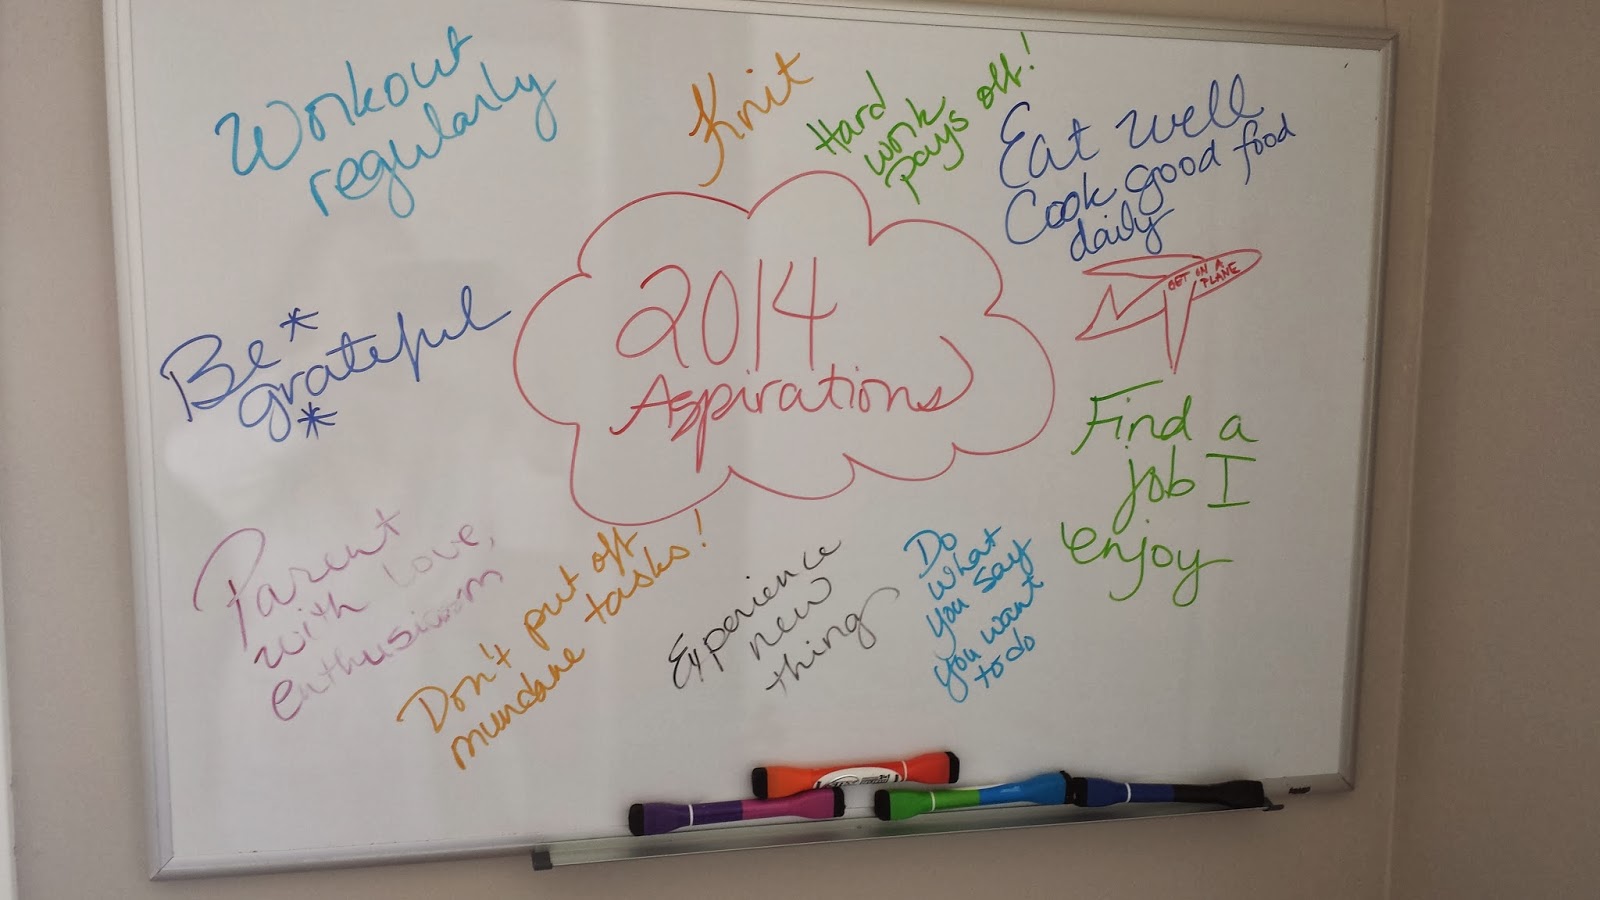 Workout
regularly
Knit
Hard
work
pays off!
Eat well
Cook good food
daily
GET ON A
PLANE
Be*
grateful
*
2014
Aspirations
Find a
job I
enjoy
Parent
with love,
enthusiasm
Don't put off
mundane tasks!
Experience
new
things
Do
what
you say
you want
to do